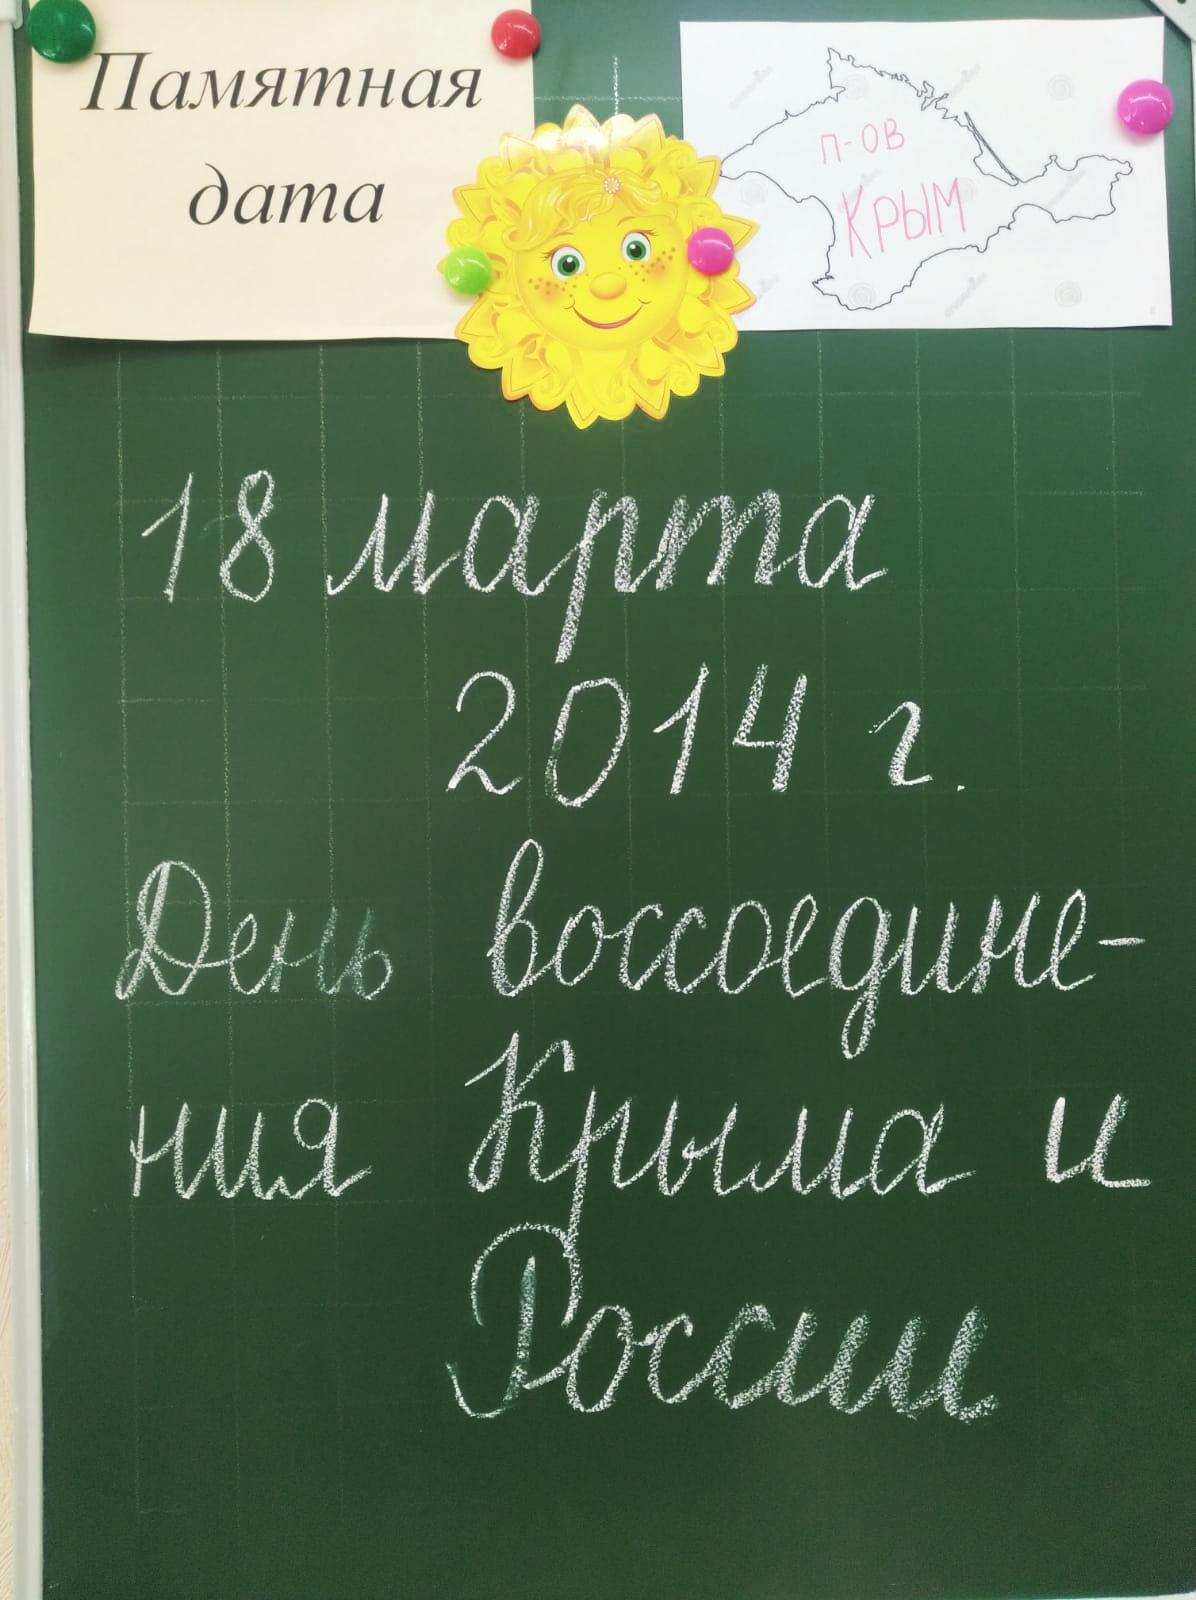 Памятная
дата
п-ов
КРЫМ
18 марта
2014 г.
День воссоедине-
ния Крыма и
России